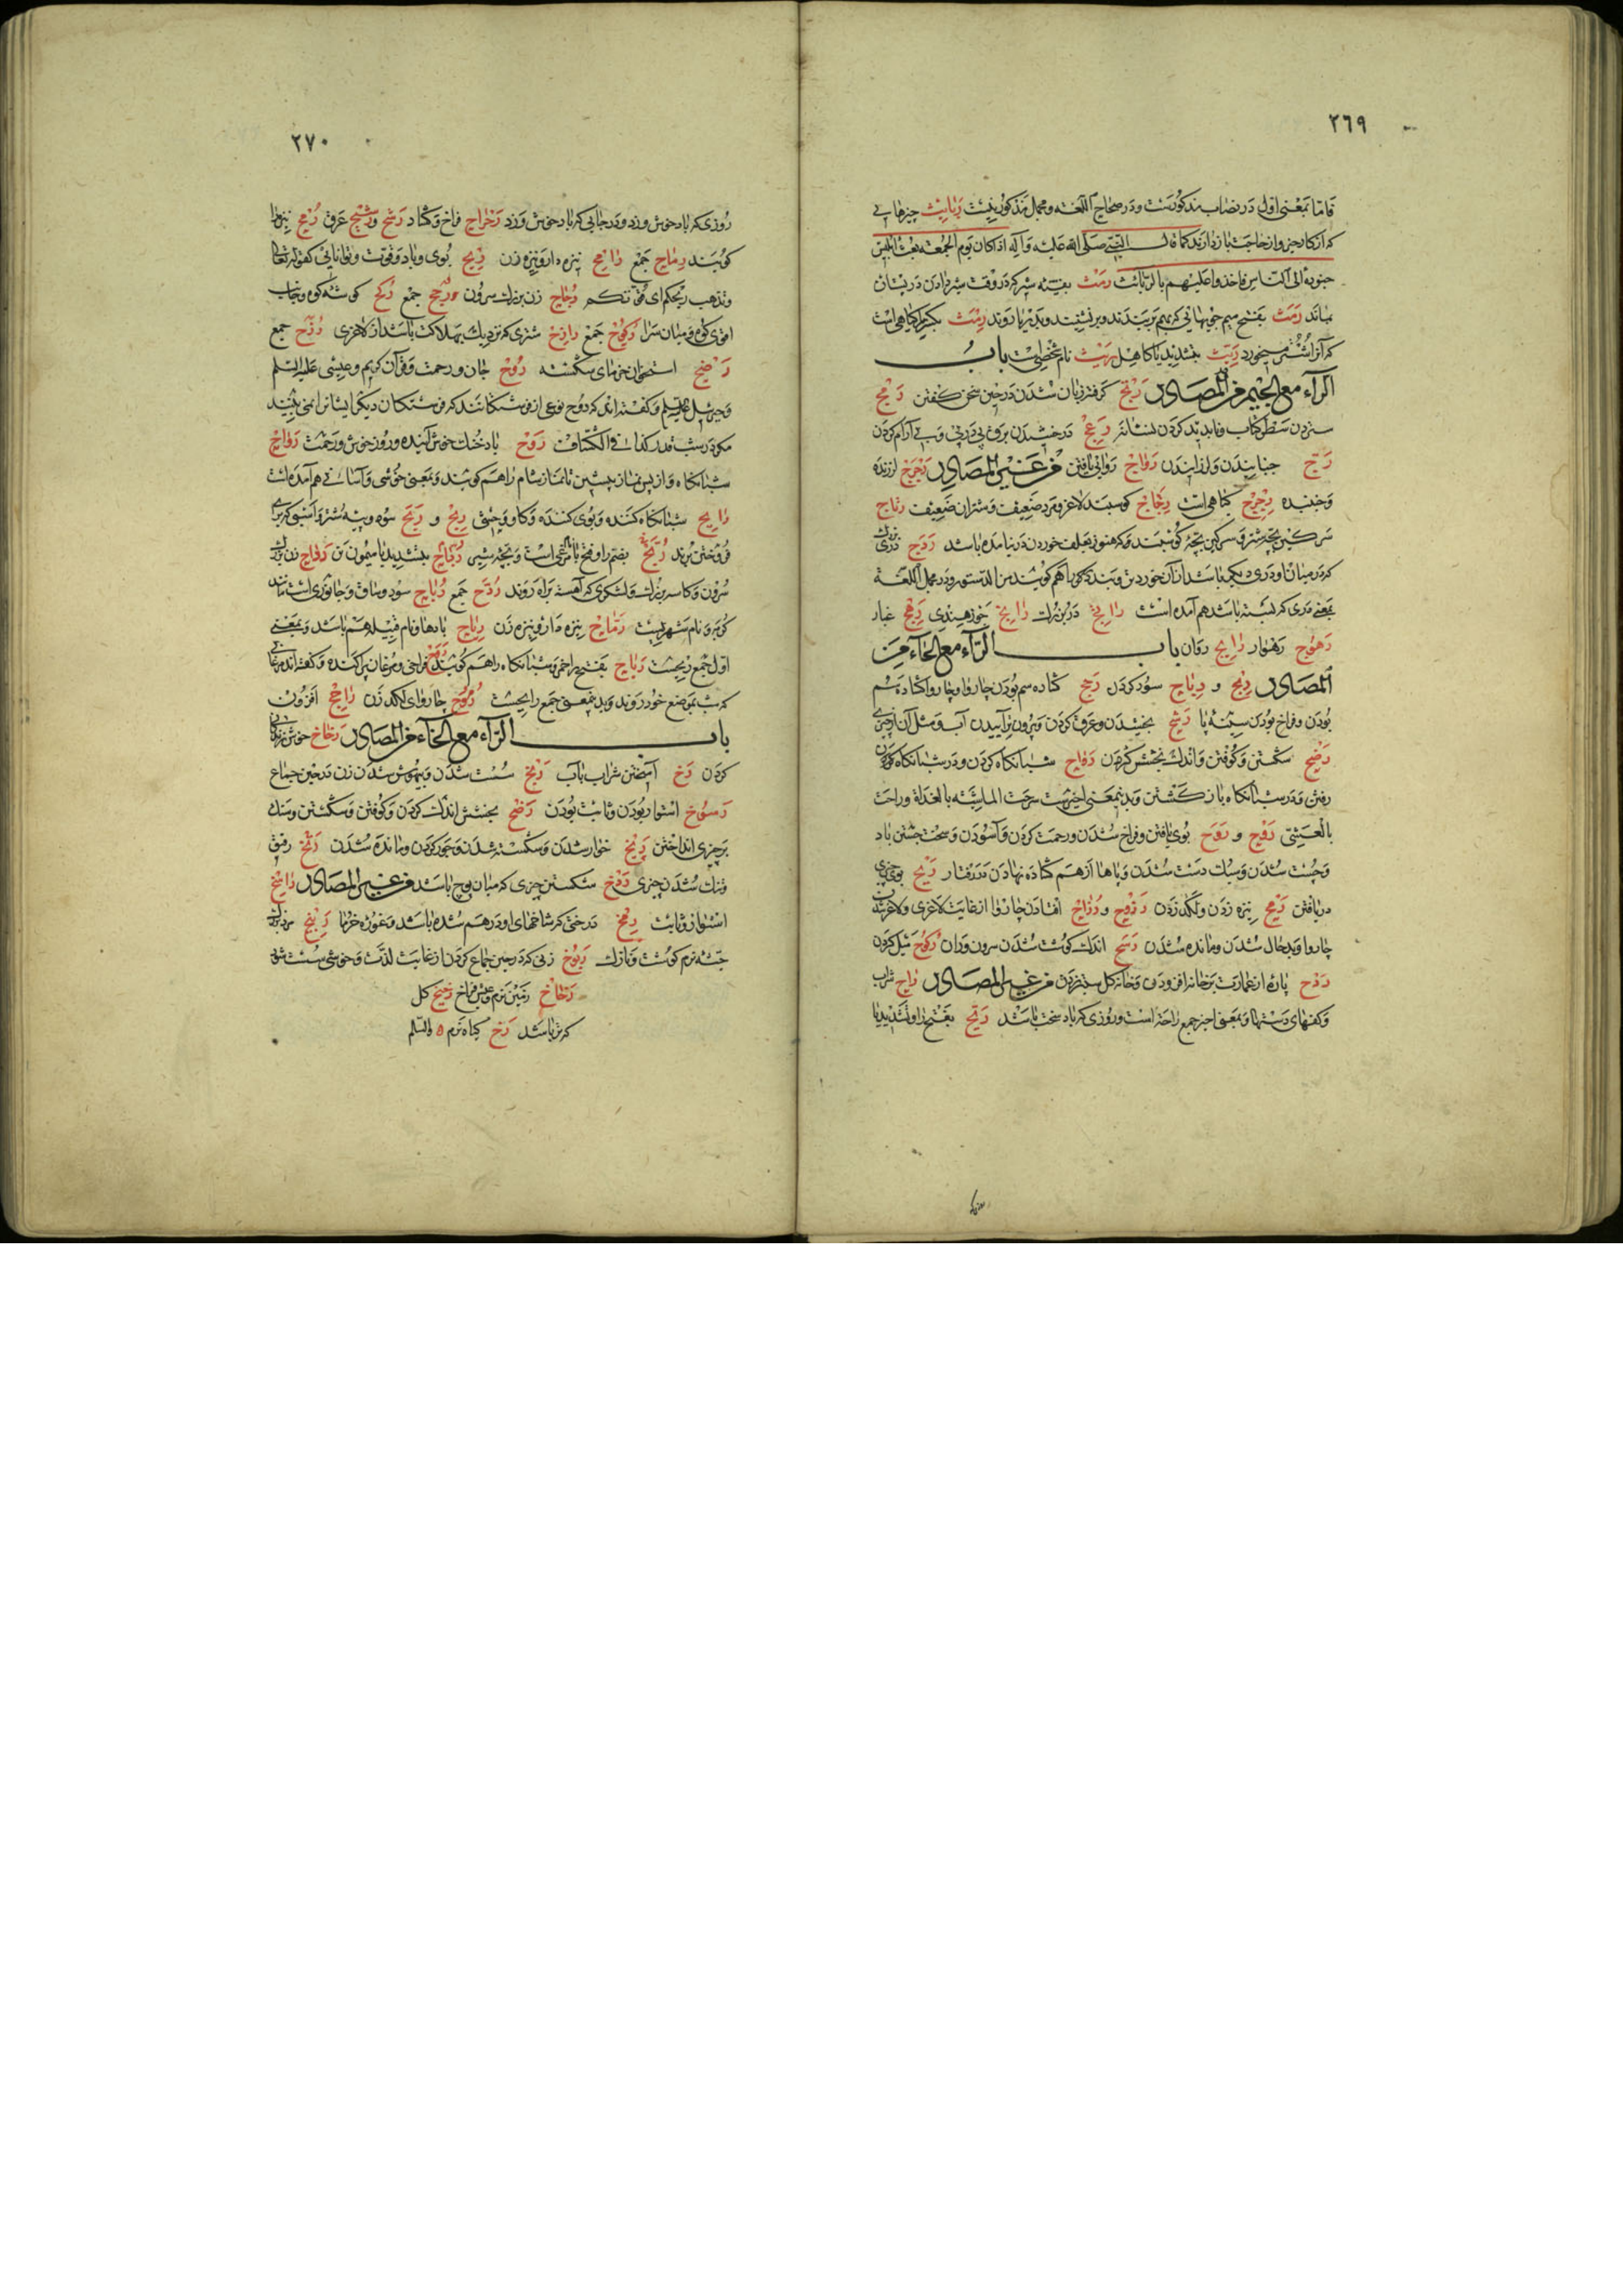 ٢٦٩
فاما بمعنی اول در نصاب مذکورست و در صحاح اللغه و مجمل مذکور نیست ربایث چیزهایی
که از کار خیر و از حاجت باز دارند کما قال النبی صلی الله علیه و آله اذا کان یوم الجمعه بعث ابلیس
جنوده الی الناس فاخذوا علیهم بالربائث رمث بقیه شیر که در وقت شیر دادن در پستان
بماند رمث بفتح میم چوبهائی که بهم بربندند و برنشینند و بدریا روند رمث بکسر را گیاهی است
که آنرا شتر میخورد ریث بتشدید یا کاهل ریث نام شخصیست باب
الراء مع الجیم من المصادر رتج گرفته زبان شدن در حین سخن گفتن رمج
ستردن سطر کتاب و ناپدید کردن نشانه رعج درخشیدن برق پی در پی و بی آرام کردن
رج جنبانیدن و لرزانیدن رواج روائی یافتن من غیر المصادر رجرج لرزنده
و جنبنده رجرج گیاهی است رجاج گوسپند لاغر و مرد ضعیف و شتران ضعیف رتاج
سرکین بچه شتر و سرکین بچه گوسپند و کره هنوز بعلف خوردن در نیامده باشد ردج در بزرک
که در میان او دری کوچک باشد از آن خوردتر و بند در که را هم گویند من الدستور و در مجمل اللغة
بمعنی دری که بسته باشد هم آمده است راتج در بزرک رانج جوز هندی رهج غبار
رهوج رهوار رایج روان باب الراء مع الحاء من
المصادر ربح و رباح سود کردن رحح گشاده سم بودن چاروا و چاروا گشاده سم
بودن و فراخ بودن سینه پا رشح بخشیدن و عرق کردن و بیرون تراییدن آب و مثل آن از چیزی
رضح شکستن و کوفتن و اندک بخشش کردن رواح شبانگاه کردن و در شبانگاه کردن
رفتن و در شبانگاه بازگشتن و بدین معنی اخیرست سرحت الماشیة بالغداة وراحت
بالعشی روح و روح بوی یافتن و فراخ شدن و رحمت کردن و آسودن و سخت جستن باد
و چست شدن و سبک دست شدن و پاها از هم گشاده نهادن در رفتار ریح بوی چیزی
دریافتن رمح نیزه زدن و لگد زدن رزوح و رزاح افتادن چاروا از غایت لاغری و لاغر شدن
چاروا و بدحال شدن و مانده شدن رسح اندک گوشت شدن سرون و ران رکوح میل کردن
ردح پاره از عمارت بر خانه افزودن و خانه گل ستبر کردن من غیر المصادر راح شراب
و کفهای دستها و بمعنی اخیر جمع راحة است و روزی که باد سخت باشد ریح بفتح را و تشدید یا
٢٧٠
روزی که باد خوش وزد و در جایی که باد خوش وزد رحراح فراخ و گشاد رشح و رشیح عرق رمح نیزه را
گویند رماح جمع رامح نیزه دار و نیزه زن ریح بوی و باد و قوت و توانائی کقوله تعالی
وتذهب ریحکم ای قوتکم رداح زن بزرک سرون رجح جمع رکح گوشه کوه و جانب
اقوی کوه و میان سرا رکوح جمع رازح شتری که نزدیک بهلاکت باشد از لاغری رزح جمع
رضیح استخوان خرمای شکسته روح جان و رحمت و قرآن کریم و عیسی علیه السلم
و جبرئیل علیه السلم و گفته اند که روح نوعی از فرشتگانند که فرشتگان دیگر ایشانرا نمی بینند
مگر در شب قدر کذا فی الکشاف روح باد خنک خوش آینده و روز خوش و رحمت رواح
شبانگاه و از پس نماز پیشین تا نماز شام را هم گویند و بمعنی خوشی و آسانی هم آمده است
رایح شبانگاه کننده و بوی کننده و گاو وحشی ربح و ربح سود و بچه شتر و اسبی که برای
فروختن برند ربح بضم را و فتح با مرغی است و بچه شیر رباح بتشدید با میمون نر رداح زن بزرک
سرون و کاسه بزرک و لشکری که آهسته براه روند ردح جمع رباح سود و ساق و جانوری است مانند
گربه و نام شهریست رماح نیزه دار و نیزه زن ریاح بادها و نام قبیله هم باشد و بمعنی
اول جمع ریحست ریاح بفتح را خمر و شبانگاه را هم گویند روح فراخی و مرغان پراکنده و گفته اند مرغانی
که شب بموضع خود روند و بدینمعنی جمع رایحست رموح چاروای لگد زن راجح افزون
باب الراء مع الخاء من المصادر رخاخ خوش زندگانی
کردن رخ آمیختن شراب بآب ربخ سست شدن و بیهوش شدن زن در حین جماع
رسوخ استوار بودن و ثابت بودن رضخ بخشش اندک کردن و کوفتن و شکستن و سنک
بر چیزی انداختن ریخ خوار شدن و شکسته شدن و جور کردن و مانده شدن رتخ رقیق
و تنک شدن چیزی ردخ شکستن چیزی که میان پوچ باشد من غیر المصادر راسخ
استوار و ثابت رمخ درختی که شاخهای او در هم شده باشد و غوره خرما ربیخ مرد بزرک
جثه نرم گوشت و نازک ربوخ زنی که در حین جماع کردن از غایت لذت و خوشی سست شود
رخاخ زمین نرم و عیش فراخ رخیخ گل
که تر باشد رخ گیاه نرم ه والسلم